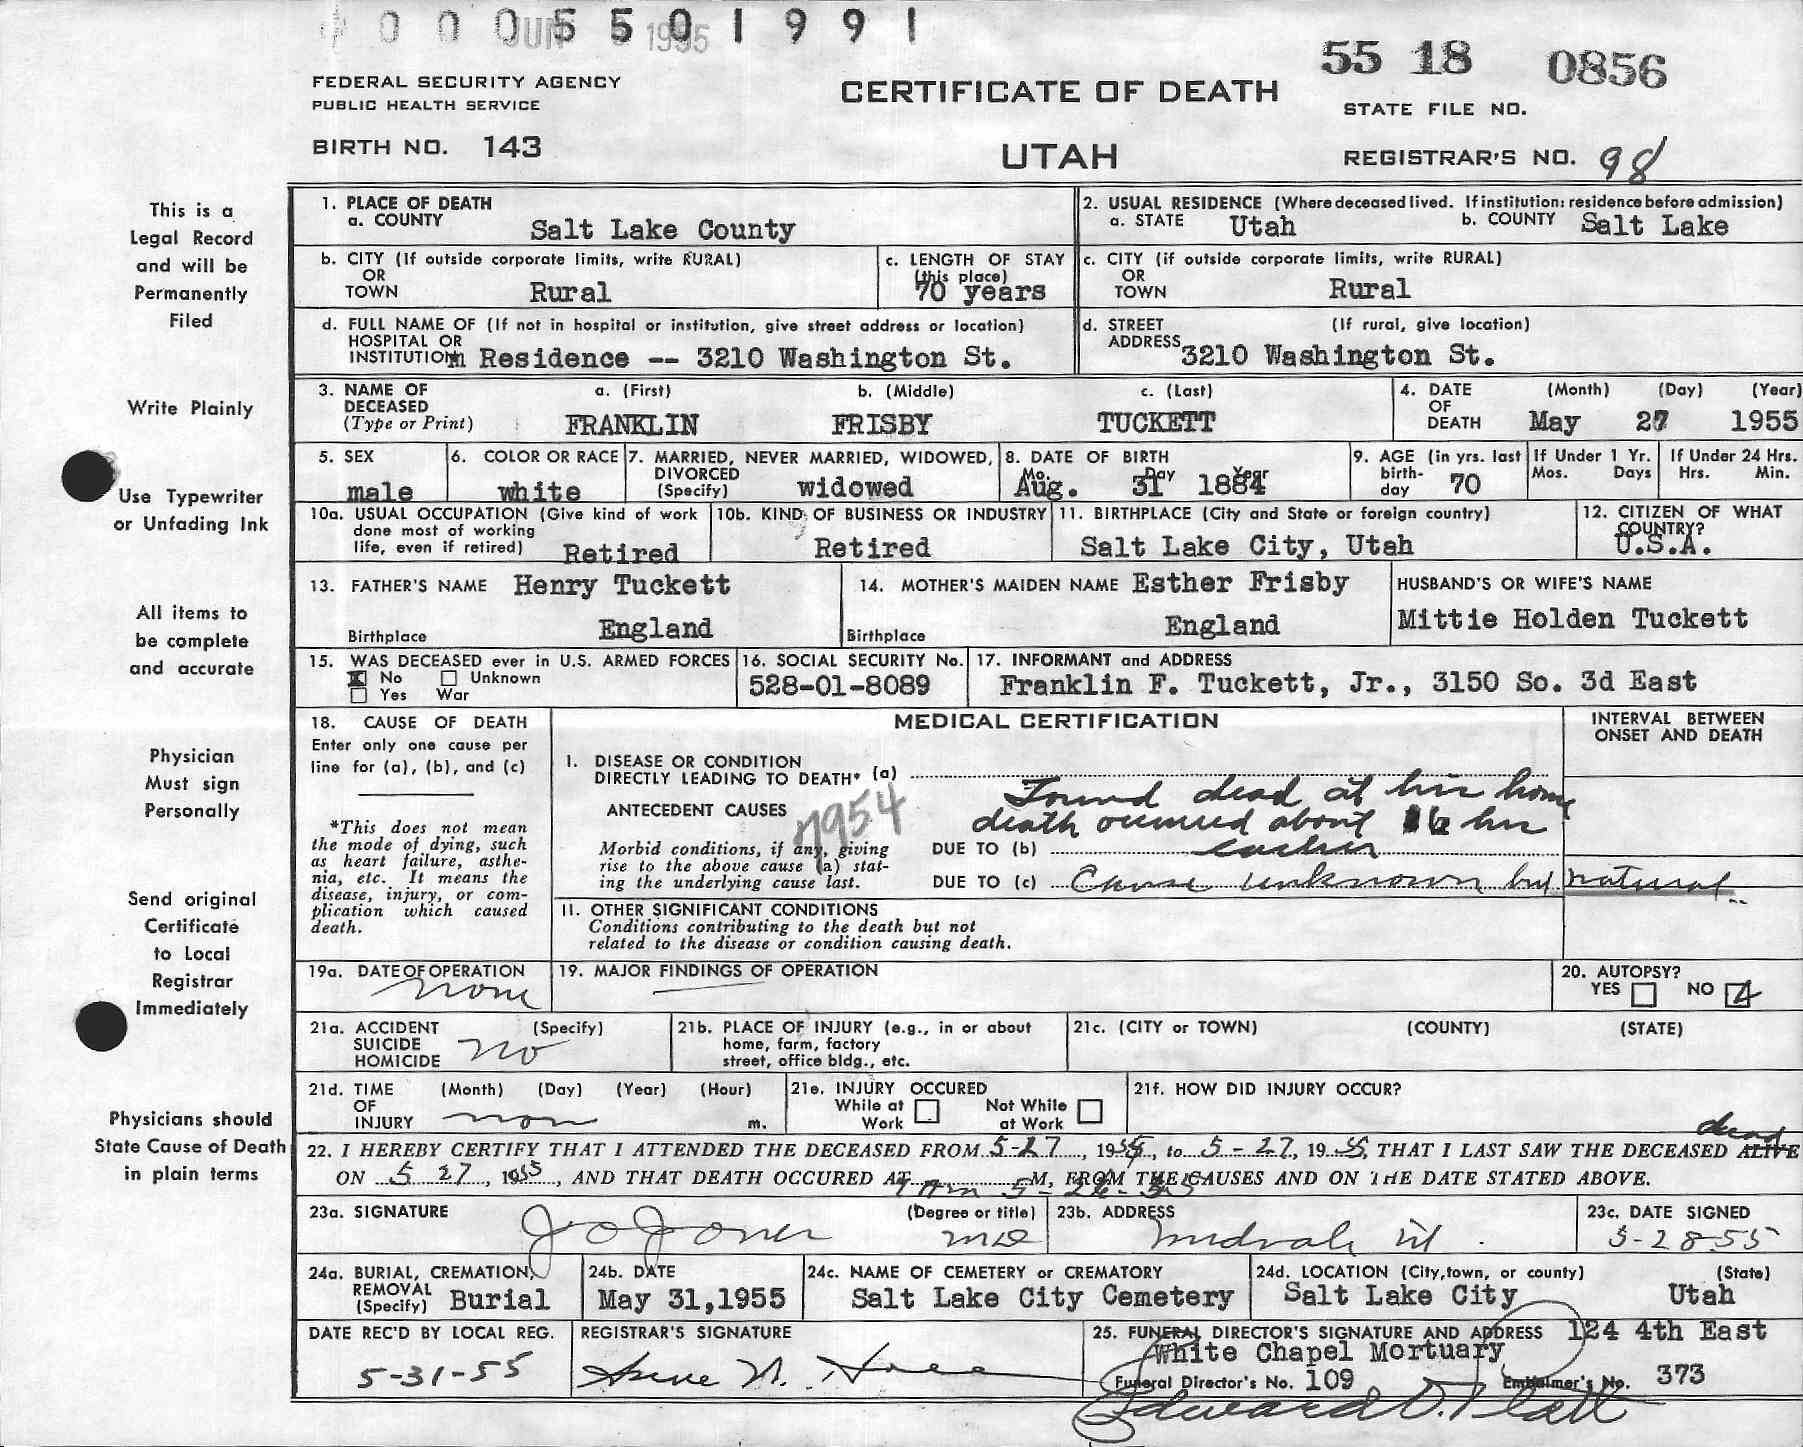 0 0 0 5 5 0 1 9 9 1
JUN 1955
55 18 0856
FEDERAL SECURITY AGENCY
PUBLIC HEALTH SERVICE
CERTIFICATE OF DEATH
STATE FILE NO.
BIRTH NO. 143
UTAH
REGISTRAR'S NO. 98
This is a
Legal Record
and will be
Permanently
Filed
Write Plainly
Use Typewriter
or Unfading Ink
All items to
be complete
and accurate
Physician
Must sign
Personally
Send original
Certificate
to Local
Registrar
Immediately
Physicians should
State Cause of Death
in plain terms
1. PLACE OF DEATH
a. COUNTY Salt Lake County
2. USUAL RESIDENCE (Where deceased lived. If institution: residence before admission)
a. STATE Utah b. COUNTY Salt Lake
b. CITY (If outside corporate limits, write RURAL)
OR
TOWN Rural
c. LENGTH OF STAY
(this place)
70 years
c. CITY (if outside corporate limits, write RURAL)
OR
TOWN Rural
d. FULL NAME OF (If not in hospital or institution, give street address or location)
HOSPITAL OR
INSTITUTION Residence -- 3210 Washington St.
d. STREET (If rural, give location)
ADDRESS 3210 Washington St.
3. NAME OF a. (First) b. (Middle) c. (Last)
DECEASED
(Type or Print) FRANKLIN FRISBY TUCKETT
4. DATE (Month) (Day) (Year)
OF
DEATH May 27 1955
5. SEX
male
6. COLOR OR RACE
white
7. MARRIED, NEVER MARRIED, WIDOWED,
DIVORCED
(Specify) widowed
8. DATE OF BIRTH
Mo. Day Year
Aug. 31 1884
9. AGE (in yrs. last
birth-
day 70
If Under 1 Yr.
Mos. Days
If Under 24 Hrs.
Hrs. Min.
10a. USUAL OCCUPATION (Give kind of work
done most of working
life, even if retired) Retired
10b. KIND OF BUSINESS OR INDUSTRY
Retired
11. BIRTHPLACE (City and State or foreign country)
Salt Lake City, Utah
12. CITIZEN OF WHAT
COUNTRY?
U.S.A.
13. FATHER'S NAME Henry Tuckett
Birthplace England
14. MOTHER'S MAIDEN NAME Esther Frisby
Birthplace England
HUSBAND'S OR WIFE'S NAME
Mittie Holden Tuckett
15. WAS DECEASED ever in U.S. ARMED FORCES
No Unknown
Yes War
16. SOCIAL SECURITY No.
528-01-8089
17. INFORMANT and ADDRESS
Franklin F. Tuckett, Jr., 3150 So. 3d East
18. CAUSE OF DEATH
Enter only one cause per
line for (a), (b), and (c)
*This does not mean
the mode of dying, such
as heart failure, asthe-
nia, etc. It means the
disease, injury, or com-
plication which caused
death.
MEDICAL CERTIFICATION
INTERVAL BETWEEN
ONSET AND DEATH
I. DISEASE OR CONDITION
DIRECTLY LEADING TO DEATH* (a)
Found dead at his home
ANTECEDENT CAUSES
7954
death occurred about 16 hrs
Morbid conditions, if any, giving
rise to the above cause (a) stat-
ing the underlying cause last.
DUE TO (b) earlier
DUE TO (c) Cause unknown but natural
II. OTHER SIGNIFICANT CONDITIONS
Conditions contributing to the death but not
related to the disease or condition causing death.
19a. DATE OF OPERATION
none
19. MAJOR FINDINGS OF OPERATION
20. AUTOPSY?
YES NO
21a. ACCIDENT (Specify)
SUICIDE
HOMICIDE no
21b. PLACE OF INJURY (e.g., in or about
home, farm, factory
street, office bldg., etc.
21c. (CITY or TOWN) (COUNTY) (STATE)
21d. TIME (Month) (Day) (Year) (Hour)
OF
INJURY non m.
21e. INJURY OCCURED
While at Not While
Work at Work
21f. HOW DID INJURY OCCUR?
dead
22. I HEREBY CERTIFY THAT I ATTENDED THE DECEASED FROM 5-27, 1955, to 5-27, 1955, THAT I LAST SAW THE DECEASED ALIVE
ON 5 27, 1955, AND THAT DEATH OCCURED AT 9 Am 5-26-55 M, FROM THE CAUSES AND ON THE DATE STATED ABOVE.
23a. SIGNATURE (Degree or title)
J O Jones MD
23b. ADDRESS
Midvale Ut.
23c. DATE SIGNED
5-28-55
24a. BURIAL, CREMATION,
REMOVAL
(Specify) Burial
24b. DATE
May 31, 1955
24c. NAME OF CEMETERY or CREMATORY
Salt Lake City Cemetery
24d. LOCATION (City, town, or county) (State)
Salt Lake City Utah
DATE REC'D BY LOCAL REG.
5-31-55
REGISTRAR'S SIGNATURE
25. FUNERAL DIRECTOR'S SIGNATURE AND ADDRESS 124 4th East
White Chapel Mortuary
Funeral Director's No. 109 Embalmer's No. 373
Edward D. Platt